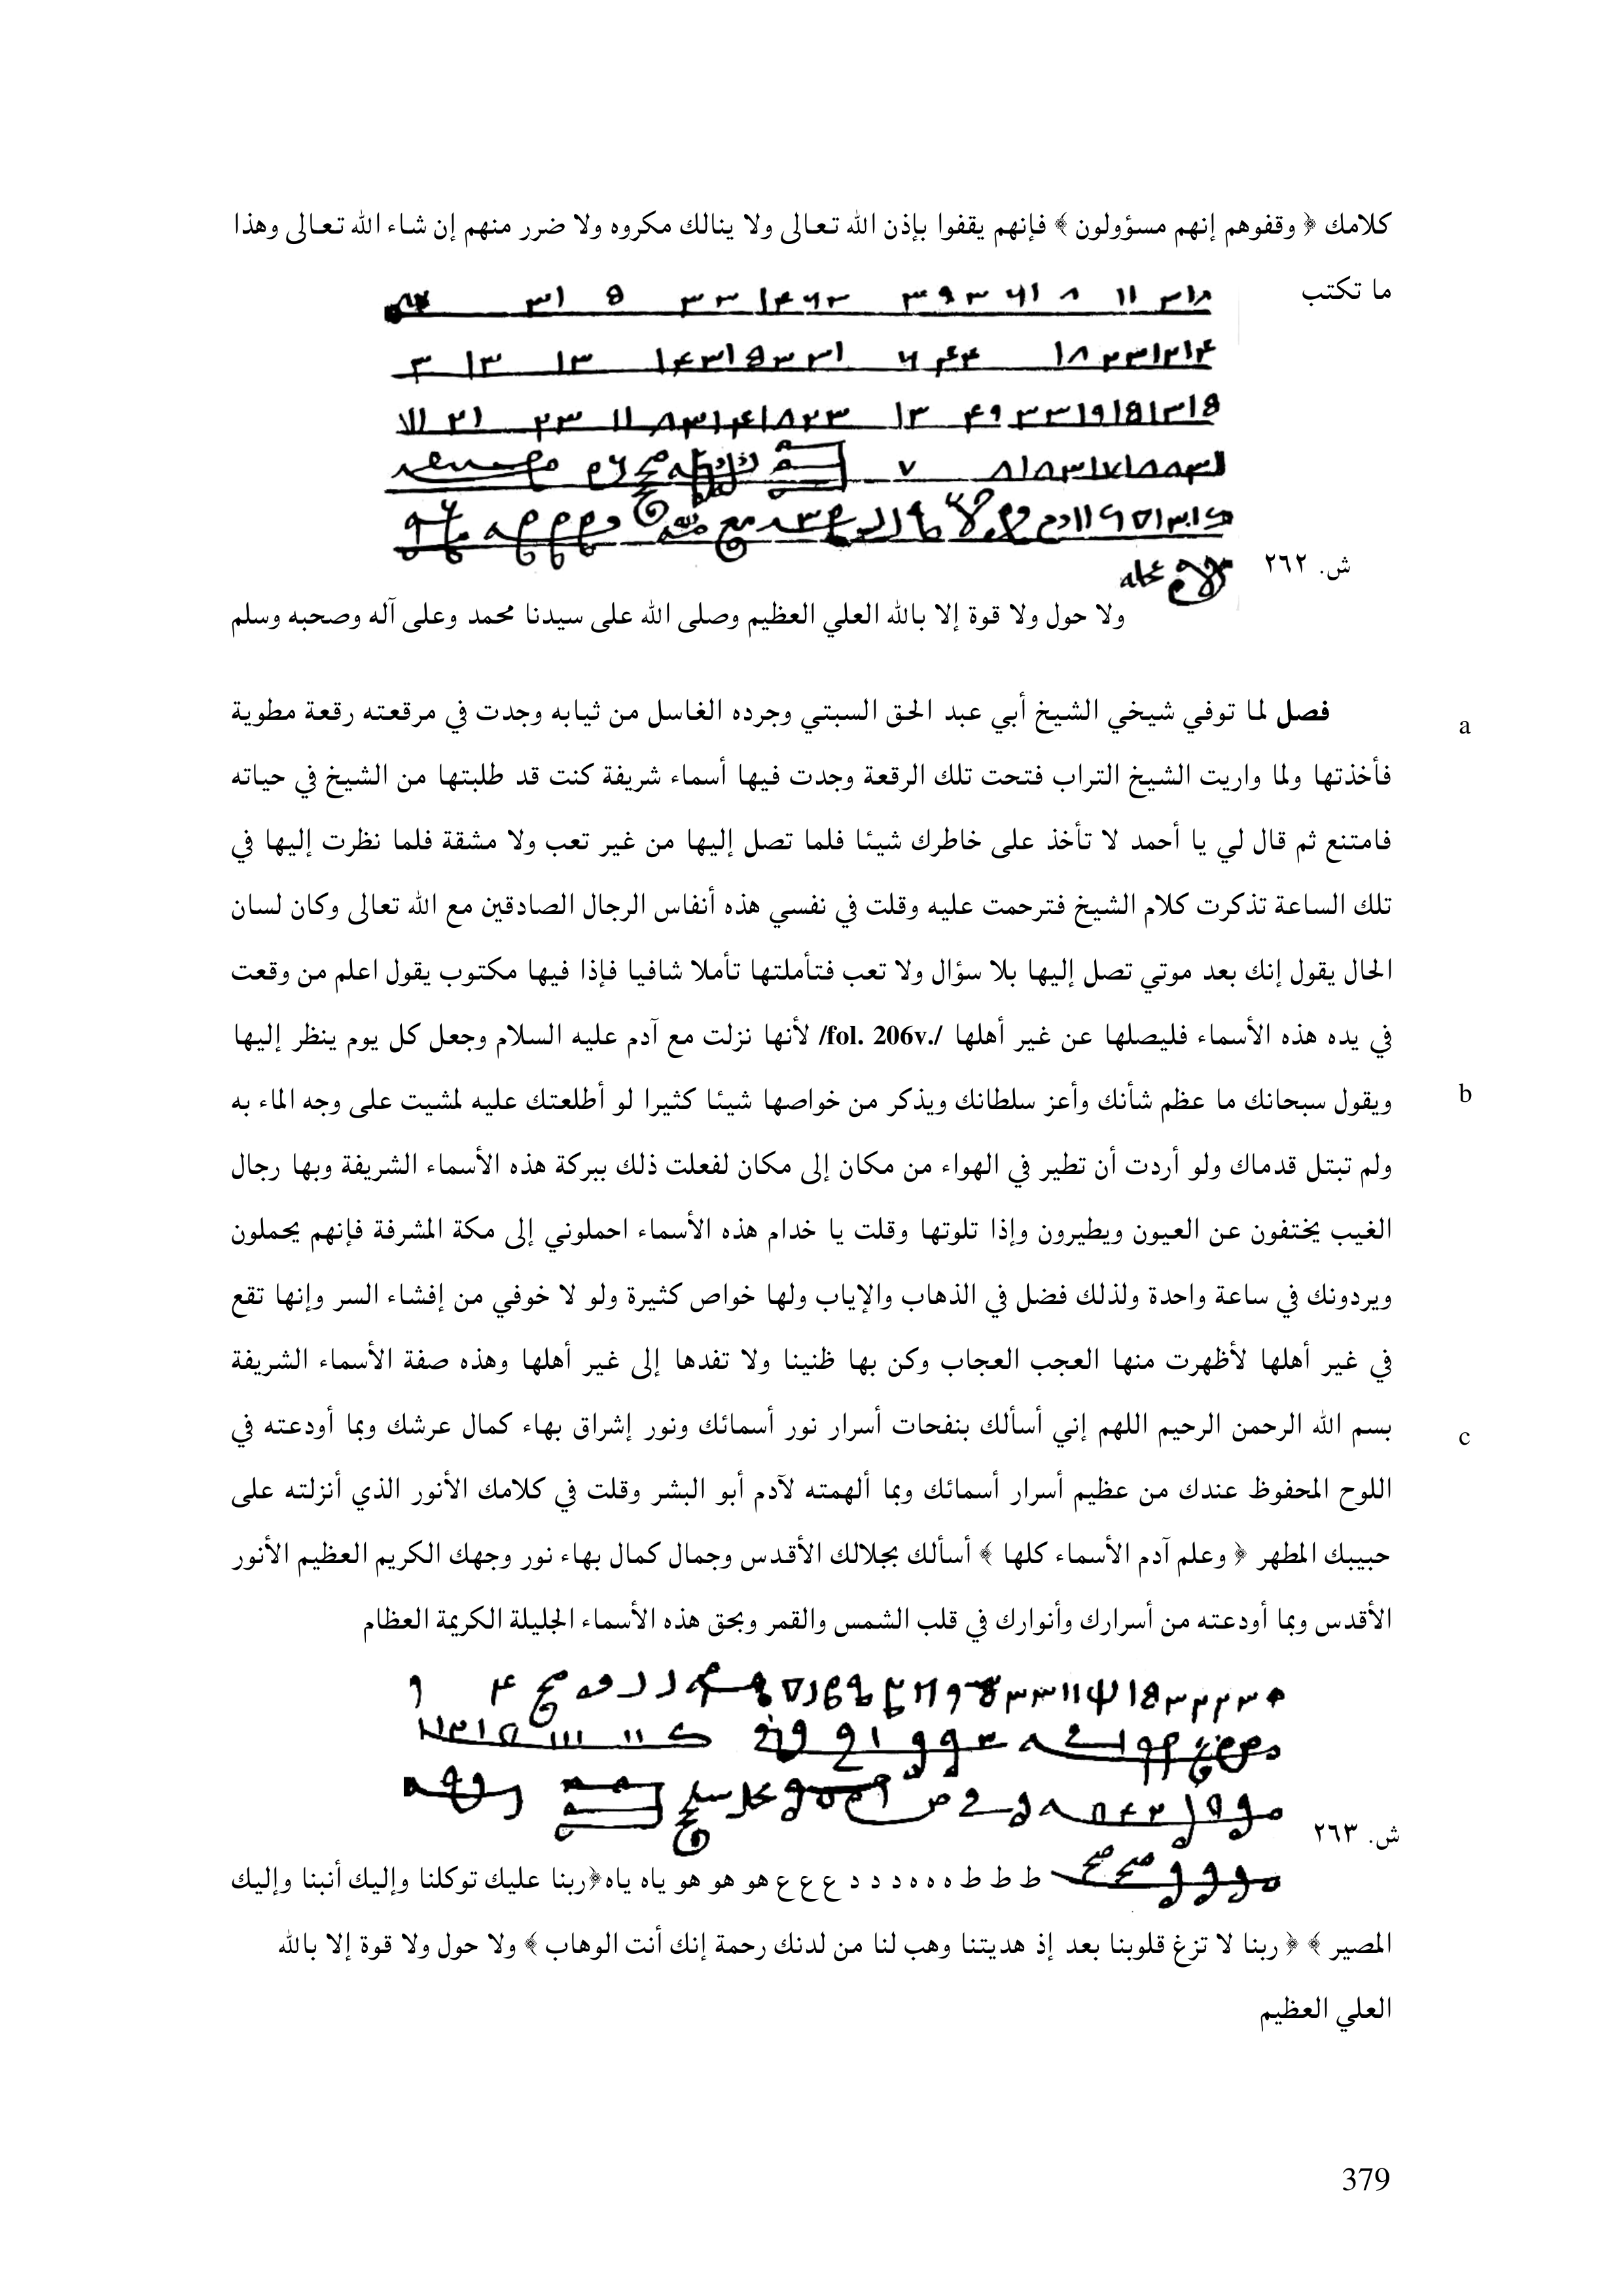 كلامك ﴿ وقفوهم إنهم مسؤولون ﴾ فإنهم يقفوا بإذن الله تعالى ولا ينالك مكروه ولا ضرر منهم إن شاء الله تعالى وهذا
ما تكتب
ش. ٢٦٢
ولا حول ولا قوة إلا بالله العلي العظيم وصلى الله على سيدنا محمد وعلى آله وصحبه وسلم
فصل لما توفي شيخي الشيخ أبي عبد الحق السبتي وجرده الغاسل من ثيابه وجدت في مرقعته رقعة مطوية a
فأخذتها ولما واريت الشيخ التراب فتحت تلك الرقعة وجدت فيها أسماء شريفة كنت قد طلبتها من الشيخ في حياته
فامتنع ثم قال لي يا أحمد لا تأخذ على خاطرك شيئا فلما تصل إليها من غير تعب ولا مشقة فلما نظرت إليها في
تلك الساعة تذكرت كلام الشيخ فترحمت عليه وقلت في نفسي هذه أنفاس الرجال الصادقين مع الله تعالى وكان لسان
الحال يقول إنك بعد موتي تصل إليها بلا سؤال ولا تعب فتأملتها تأملا شافيا فإذا فيها مكتوب يقول اعلم من وقعت
في يده هذه الأسماء فليصلها عن غير أهلها /fol. 206v./ لأنها نزلت مع آدم عليه السلام وجعل كل يوم ينظر إليها
ويقول سبحانك ما عظم شأنك وأعز سلطانك ويذكر من خواصها شيئا كثيرا لو أطلعتك عليه لمشيت على وجه الماء به b
ولم تبتل قدماك ولو أردت أن تطير في الهواء من مكان إلى مكان لفعلت ذلك ببركة هذه الأسماء الشريفة وبها رجال
الغيب يختفون عن العيون ويطيرون وإذا تلوتها وقلت يا خدام هذه الأسماء احملوني إلى مكة المشرفة فإنهم يحملون
ويردونك في ساعة واحدة ولذلك فضل في الذهاب والإياب ولها خواص كثيرة ولو لا خوفي من إفشاء السر وإنها تقع
في غير أهلها لأظهرت منها العجب العجاب وكن بها ظنينا ولا تفدها إلى غير أهلها وهذه صفة الأسماء الشريفة
بسم الله الرحمن الرحيم اللهم إني أسألك بنفحات أسرار نور أسمائك ونور إشراق بهاء كمال عرشك وبما أودعته في c
اللوح المحفوظ عندك من عظيم أسرار أسمائك وبما ألهمته لآدم أبو البشر وقلت في كلامك الأنور الذي أنزلته على
حبيبك المطهر ﴿ وعلم آدم الأسماء كلها ﴾ أسألك بجلالك الأقدس وجمال كمال بهاء نور وجهك الكريم العظيم الأنور
الأقدس وبما أودعته من أسرارك وأنوارك في قلب الشمس والقمر وبحق هذه الأسماء الجليلة الكريمة العظام
ش. ٢٦٣
ط ط ط ه ه ه د د د ع ع ع هو هو هو ياه ياه ﴿ربنا عليك توكلنا وإليك أنبنا وإليك
المصير ﴾ ﴿ ربنا لا تزغ قلوبنا بعد إذ هديتنا وهب لنا من لدنك رحمة إنك أنت الوهاب ﴾ ولا حول ولا قوة إلا بالله
العلي العظيم
379